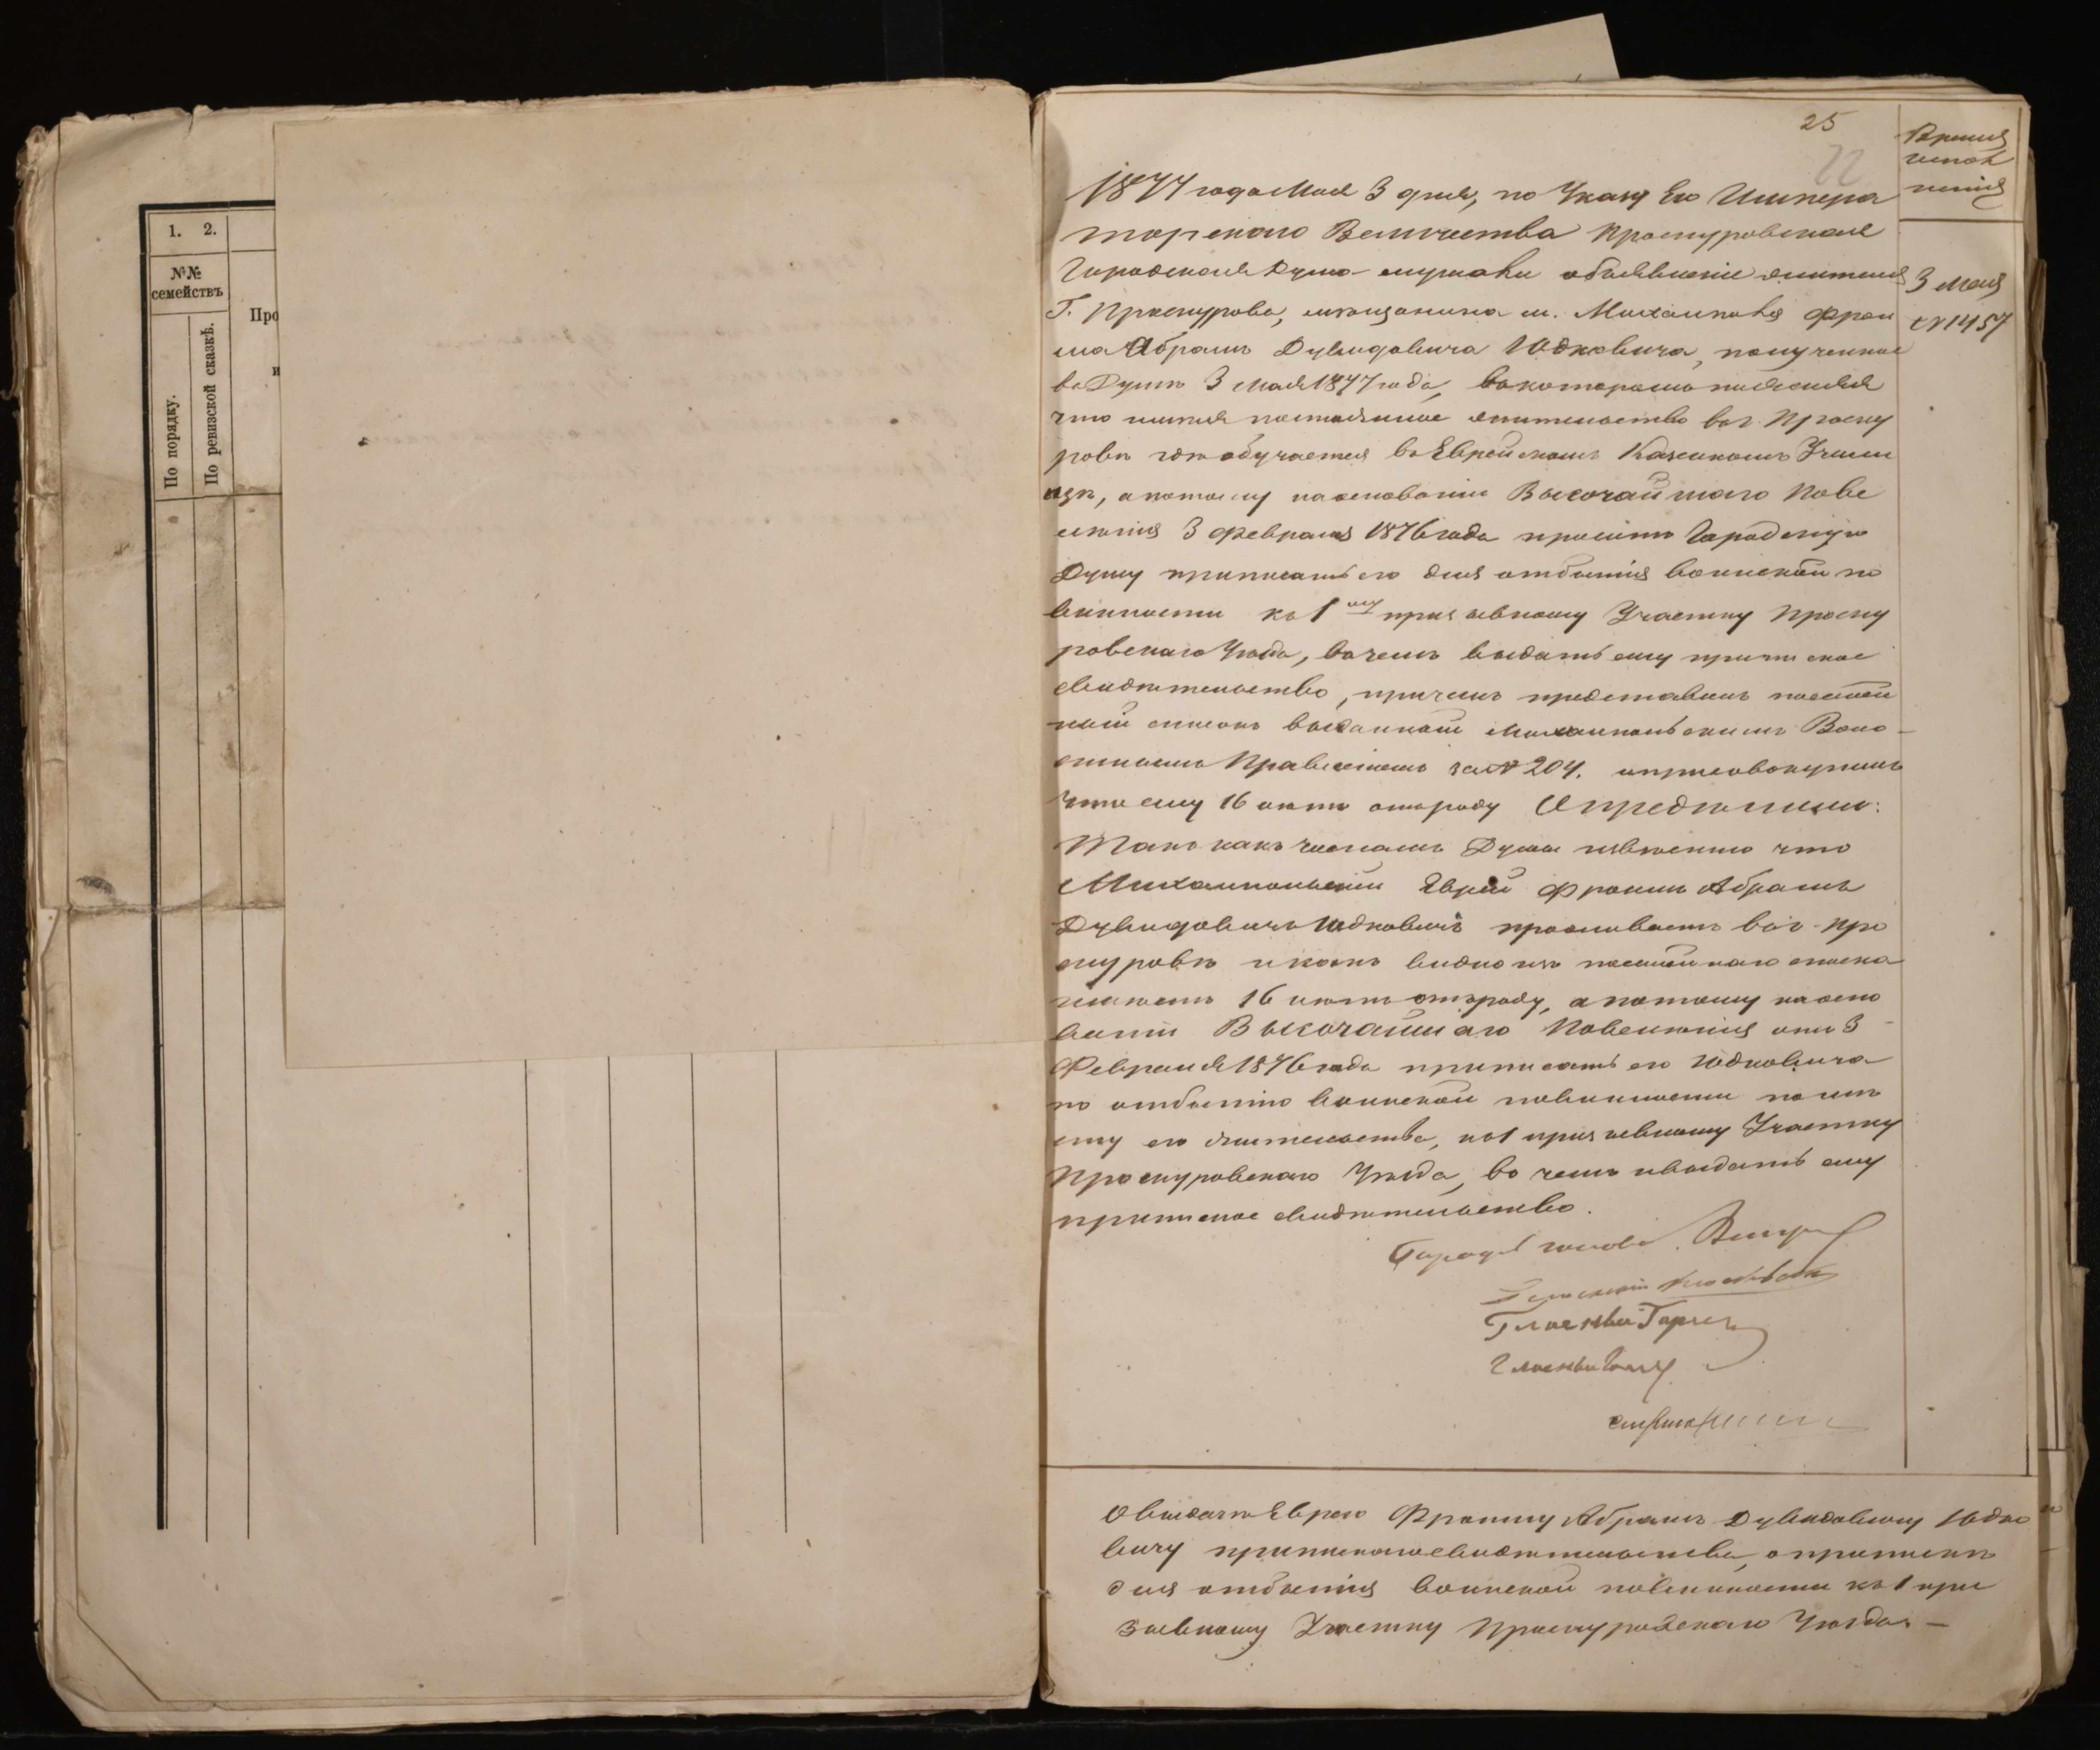 1. 2.
№№
семействъ
По порядку.
По ревизской сказкѣ.
Про
и
25
22
Время
испол
ненія
3 Мая
№ 1457
1877 года Мая 3 дня, по Указу Его Импера
торскаго Величества Проскуровская
Городская Дума слушали объявленіе жителя
Г. Проскурова, мѣщанина м. Михалполя Фрои
ма Абрамъ Дувидовича Юдковича, полученное
въ Думѣ 3 Мая 1877 года, въ которомъ изъяснилъ
что имѣя постоянное жительство въ г. Проску
ровѣ гдѣ обучается въ Еврейскомъ Казенномъ Учили
щѣ, а потому на основаніи Высочайшаго Пове
лѣнія 3 Февраля 1876 года проситъ Городскую
Думу приписать его для отбытія воинской по
винности къ 1му призывному Участку Проску
ровскаго Уѣзда, въ чемъ выдать ему приписное
свидѣтельство, при чемъ представилъ посемей
ный списокъ выданный Михалпольскимъ Воло
стнымъ Правленіемъ за № 204. и присовокупилъ
что ему 16 лѣтъ отъ роду Опредѣлили:
Такъ какъ Гласнымъ Думы извѣстно что
Михалпольскій Еврей Фроимъ Абрамъ
Дувидовичъ Юдковичъ проживаетъ въ г. Про
скуровѣ и какъ видно изъ посемейнаго списка
имѣетъ 16 лѣтъ отъ роду, а потому на осно
ваніи Высочайшаго Повелѣнія отъ 3
Февраля 1876 года приписать его Юдковича
по отбытію воинской повинности по мѣ
сту его жительства, къ 1 призывному Участку
Проскуровскаго Уѣзда, въ чемъ и выдать ему
приписное свидѣтельство.
Городс голова
Гласный
Гласный
Гласный
О выдачѣ Еврею Фроиму Абрамъ Дувидовичу Юдко
вичу приписнаго свидѣтельства, о припискѣ
для отбытія воинской повинности къ 1 при
зывному Участку Проскуровскаго Уѣзда —